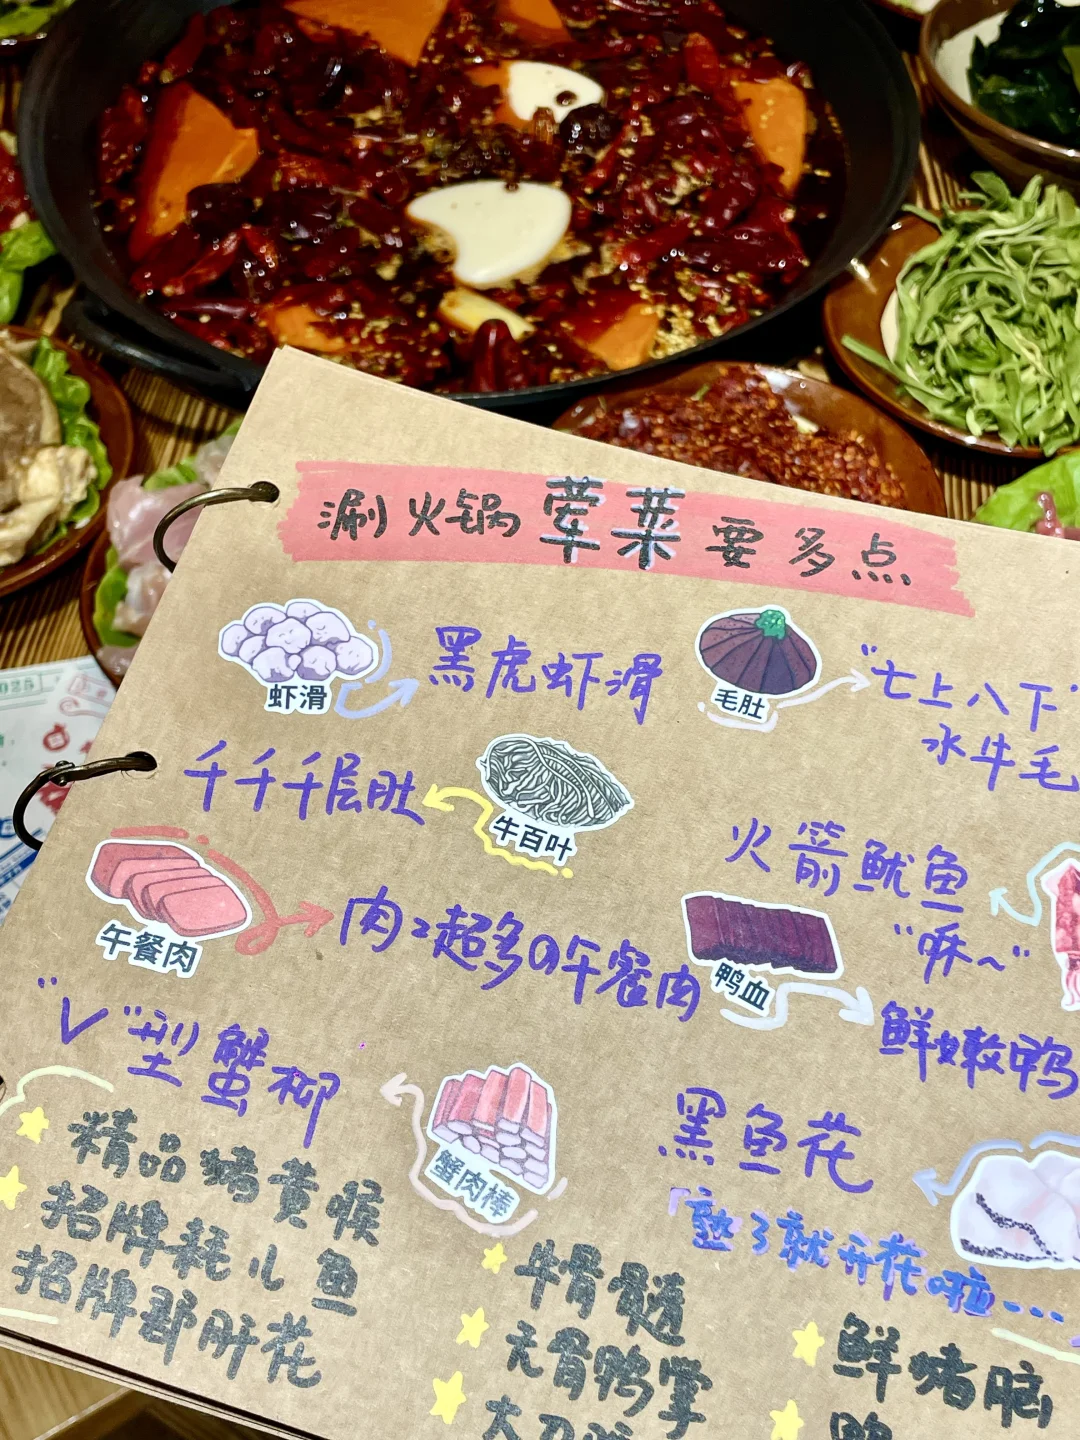 涮火锅荤菜要多点
虾滑
黑虎虾滑
毛肚
"七上八下"
水牛毛
千千千层肚
牛百叶
火箭鱿鱼
"咻~"
午餐肉
肉肉超多の午餐肉
鸭血
鲜嫩鸭
"V"型蟹柳
蟹肉棒
黑鱼花
「熟了就开花啦...
精品
黄喉
招牌耗儿鱼
招牌郡肝花
牛骨髓
无骨鸭掌
鲜猪脑
鸭
2025